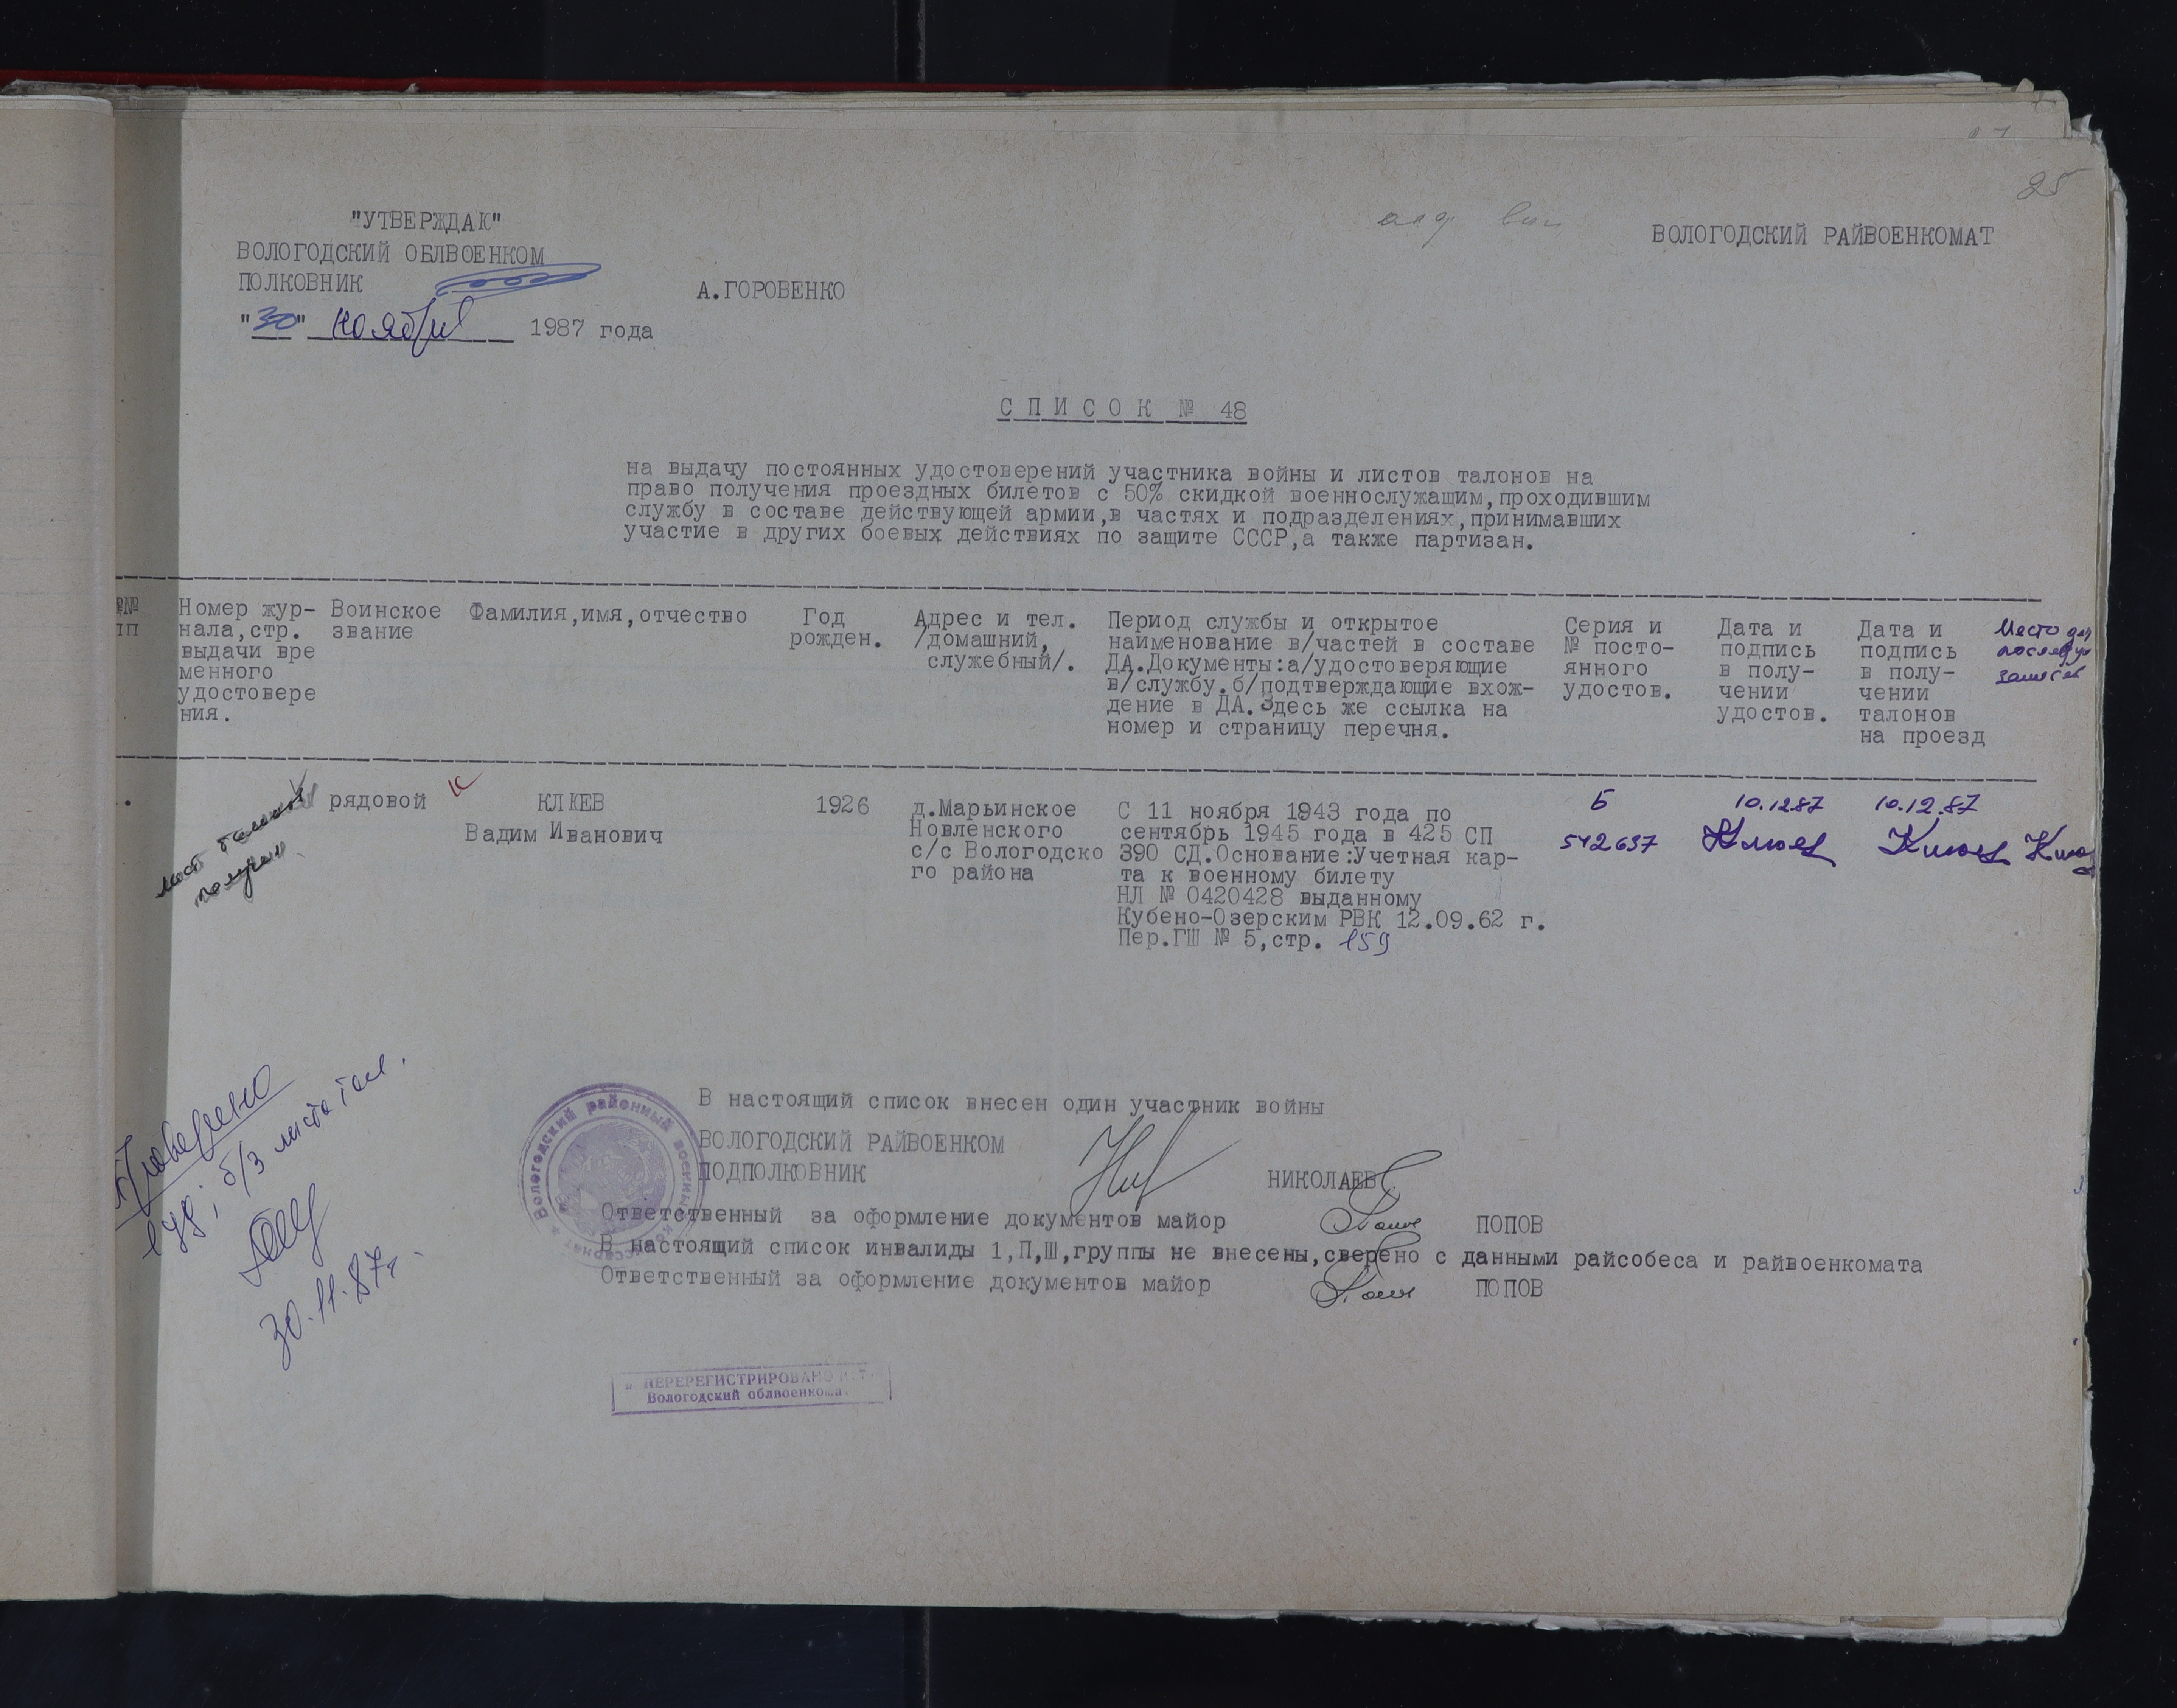 25
"УТВЕРЖДАЮ"
ВОЛОГОДСКИЙ ОБЛВОЕНКОМ
ПОЛКОВНИК А.ГОРОВЕНКО
"30" ноября 1987 года
ВОЛОГОДСКИЙ РАЙВОЕНКОМАТ
СПИСОК № 48
на выдачу постоянных удостоверений участника войны и листов талонов на
право получения проездных билетов с 50% скидкой военнослужащим,проходившим
службу в составе действующей армии,в частях и подразделениях,принимавших
участие в других боевых действиях по защите СССР,а также партизан.
№№
пп
Номер жур-
нала,стр.
выдачи вре
менного
удостовере
ния.
Воинское
звание
Фамилия,имя,отчество
Год
рожден.
Адрес и тел.
/домашний,
служебный/.
Период службы и открытое
наименование в/частей в составе
ДА.Документы:а/удостоверяющие
в/службу.б/подтверждающие вхож-
дение в ДА.Здесь же ссылка на
номер и страницу перечня.
Серия и
№ посто-
янного
удостов.
Дата и
подпись
в полу-
чении
удостов.
Дата и
подпись
в полу-
чении
талонов
на проезд
Место для
лист талонов
получен
рядовой
КЛЮЕВ
Вадим Иванович
1926
д.Марьинское
Новленского
с/с Вологодско
го района
С 11 ноября 1943 года по
сентябрь 1945 года в 425 СП
390 СД.Основание:Учетная кар-
та к военному билету
НЛ № 0420428 выданному
Кубено-Озерским РВК 12.09.62 г.
Пер.ГШ № 5,стр. 159
Б
542637
10.12.87
Клюев
10.12.87
Клюев
Клюе
Проверено
1 уд; б/з листа тал.
30.11.87г.
В настоящий список внесен один участник войны
ВОЛОГОДСКИЙ РАЙВОЕНКОМ
ПОДПОЛКОВНИК НИКОЛАЕВ
Ответственный за оформление документов майор ПОПОВ
В настоящий список инвалиды 1,П,Ш,группы не внесены,сверено с данными райсобеса и райвоенкомата
Ответственный за оформление документов майор ПОПОВ
Вологодский районный военный комиссариат
ПЕРЕРЕГИСТРИРОВАНО
Вологодский облвоенкомат